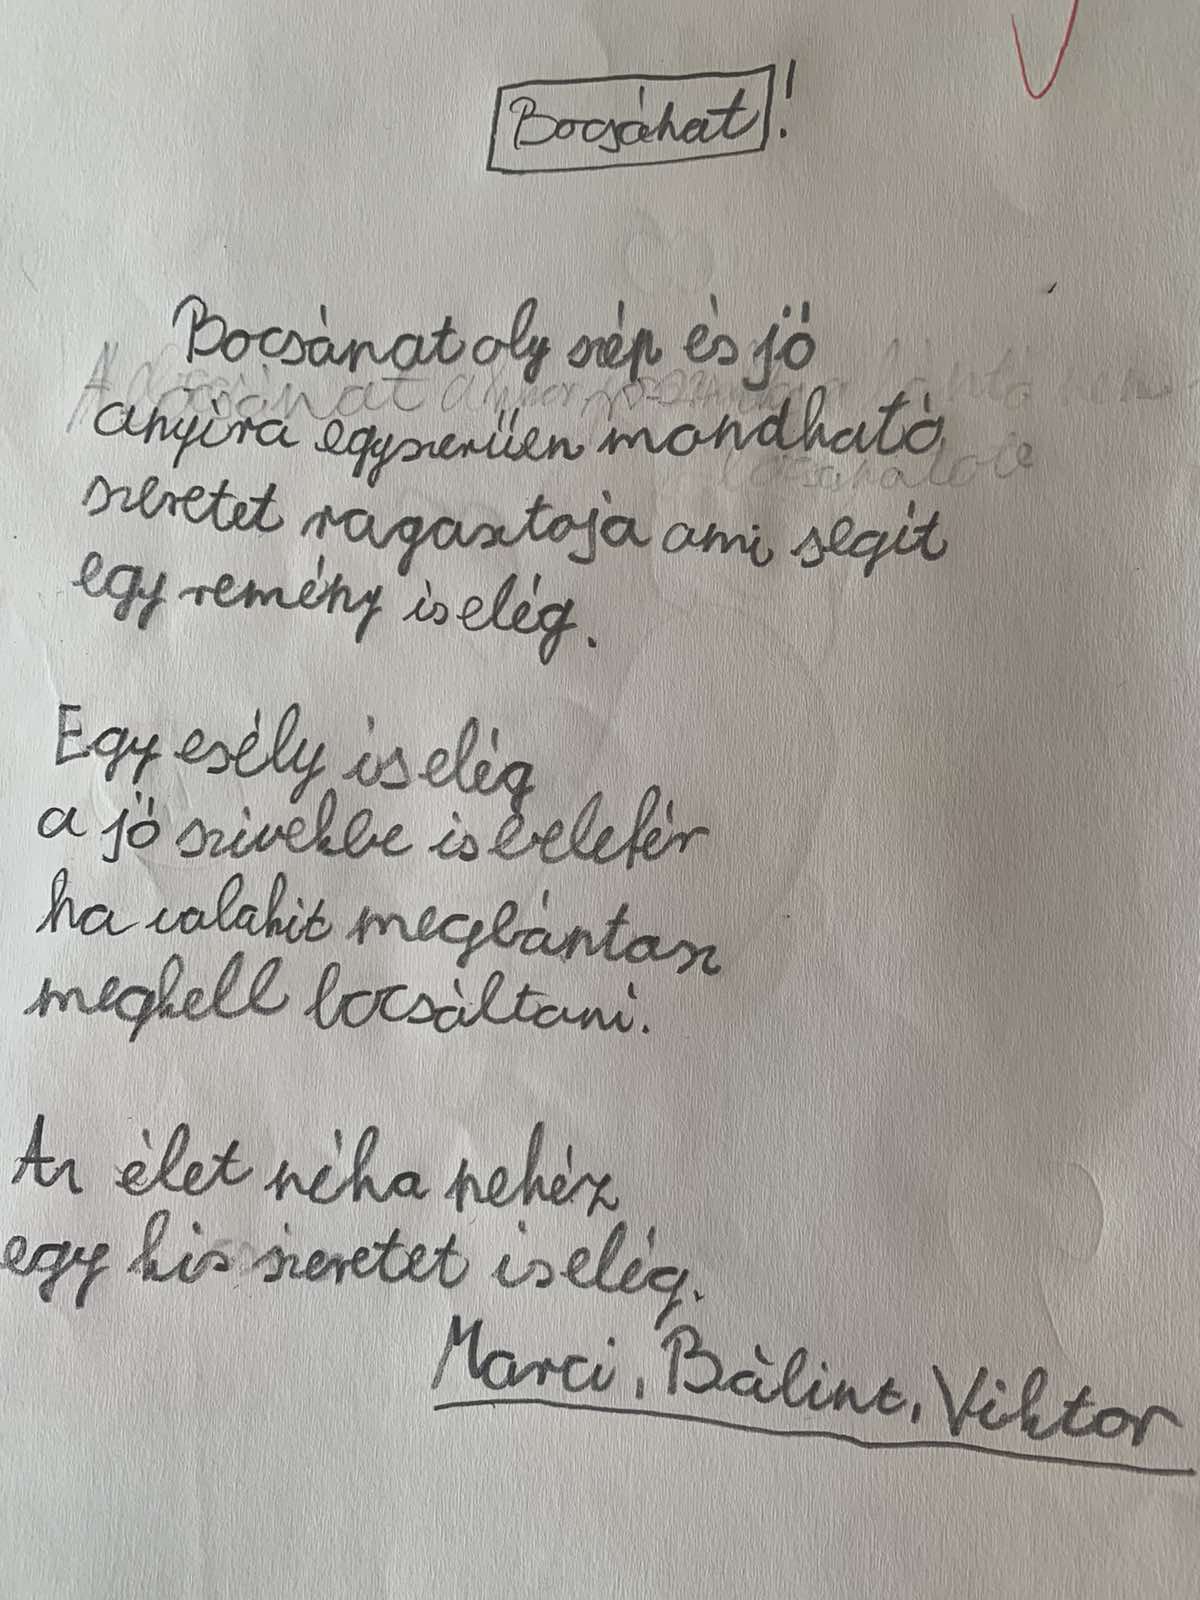 Bocsánat!
Bocsánat oly szép és jó
anyira egyszerűen mondható
szeretet ragasztoja ami segit
egy remény is elég.
Egy esély is elég
a jó szivekbe is belefér
ha valakit megbántasz
megkell bocsáltani.
Az élet néha nehéz
egy kis szeretet is elég.
Marci, Bálint, Viktor